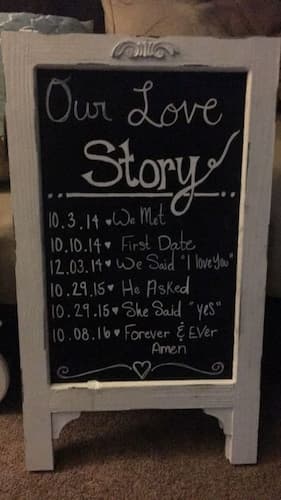 Our Love
Story
10.3.14 ♥ We Met
10.10.14 ♥ First Date
12.03.14 ♥ We Said "I love you"
10.29.15 ♥ He Asked
10.29.15 ♥ She Said "yes"
10.08.16 ♥ Forever & Ever
Amen